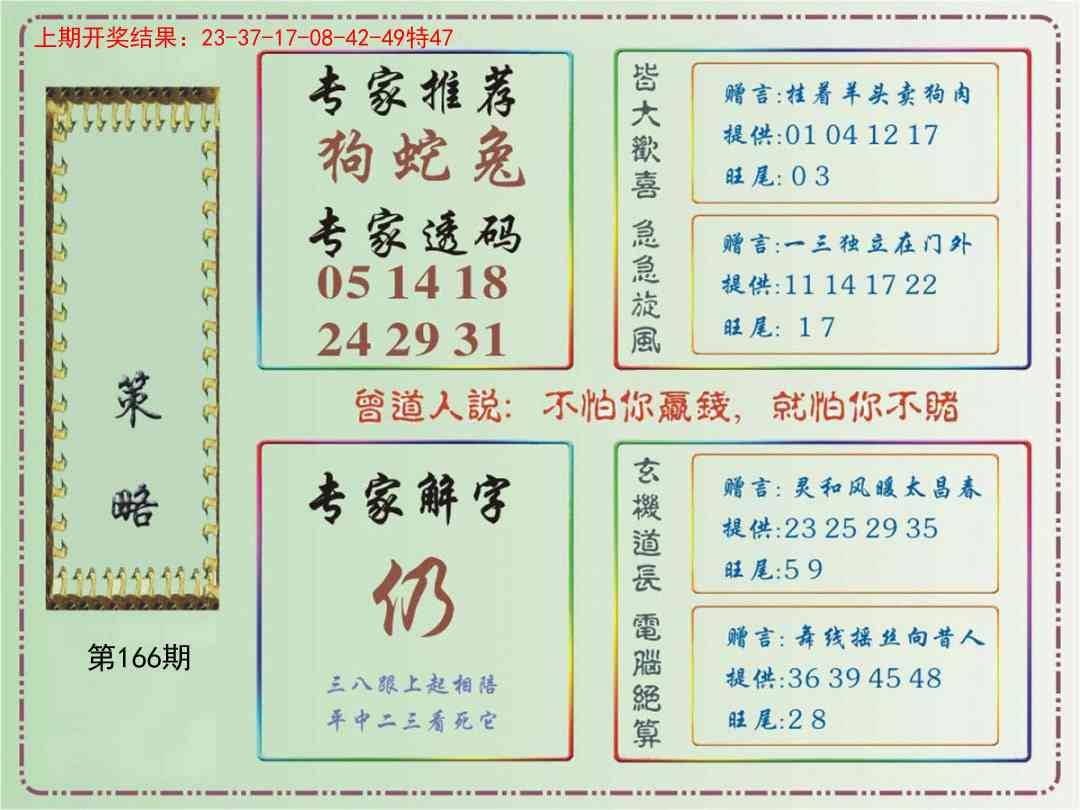 上期开奖结果：23-37-17-08-42-49特47
策略
第166期
专家推荐
狗蛇兔
专家透码
05 14 18
24 29 31
皆大歡喜
赠言:挂着羊头卖狗肉
提供:01 04 12 17
旺尾: 0 3
急急旋風
赠言:一三独立在门外
提供:11 14 17 22
旺尾: 1 7
曾道人説: 不怕你贏錢, 就怕你不賭
专家解字
仍
三八跟上起相陪
平中二三看死它
玄機道長
赠言: 灵和风暖太昌春
提供:23 25 29 35
旺尾:5 9
電腦絕算
赠言: 舞线摇丝向昔人
提供:36 39 45 48
旺尾:2 8